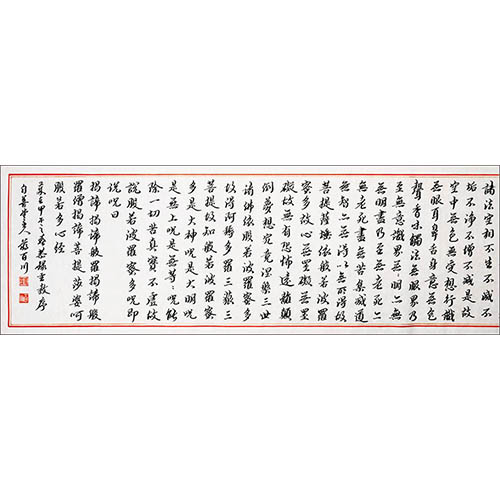 諸法空相不生不滅不
垢不淨不增不減是故
空中無色無受想行識
無眼耳鼻舌身意無色
聲香味觸法無眼界乃
至無意識界無〻明亦無
無明盡乃至無老死亦
無老死盡無苦集滅道
無智亦無得以無所得故
菩提薩埵依般若波羅
蜜多故心無罣礙無罣
礙故無有恐怖遠離顛
倒夢想究竟涅槃三世
諸佛依般若波羅蜜多
故得阿耨多羅三藐三
菩提故知般若波羅蜜
多是大神咒是大明咒
是無上咒是無等〻咒能
除一切苦真實不虛故
說般若波羅蜜多咒即
說咒曰
揭諦揭諦般羅揭諦般
羅僧揭諦菩提莎婆呵
般若多心經
甲午之春
百川